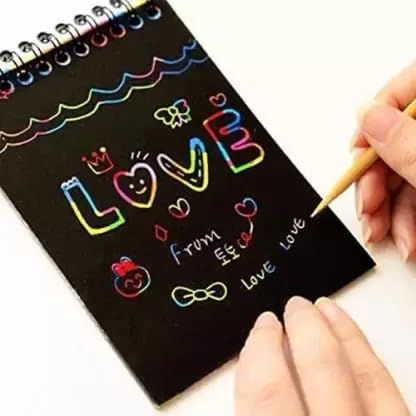 LOVE
From
토토
LOVE LOVE